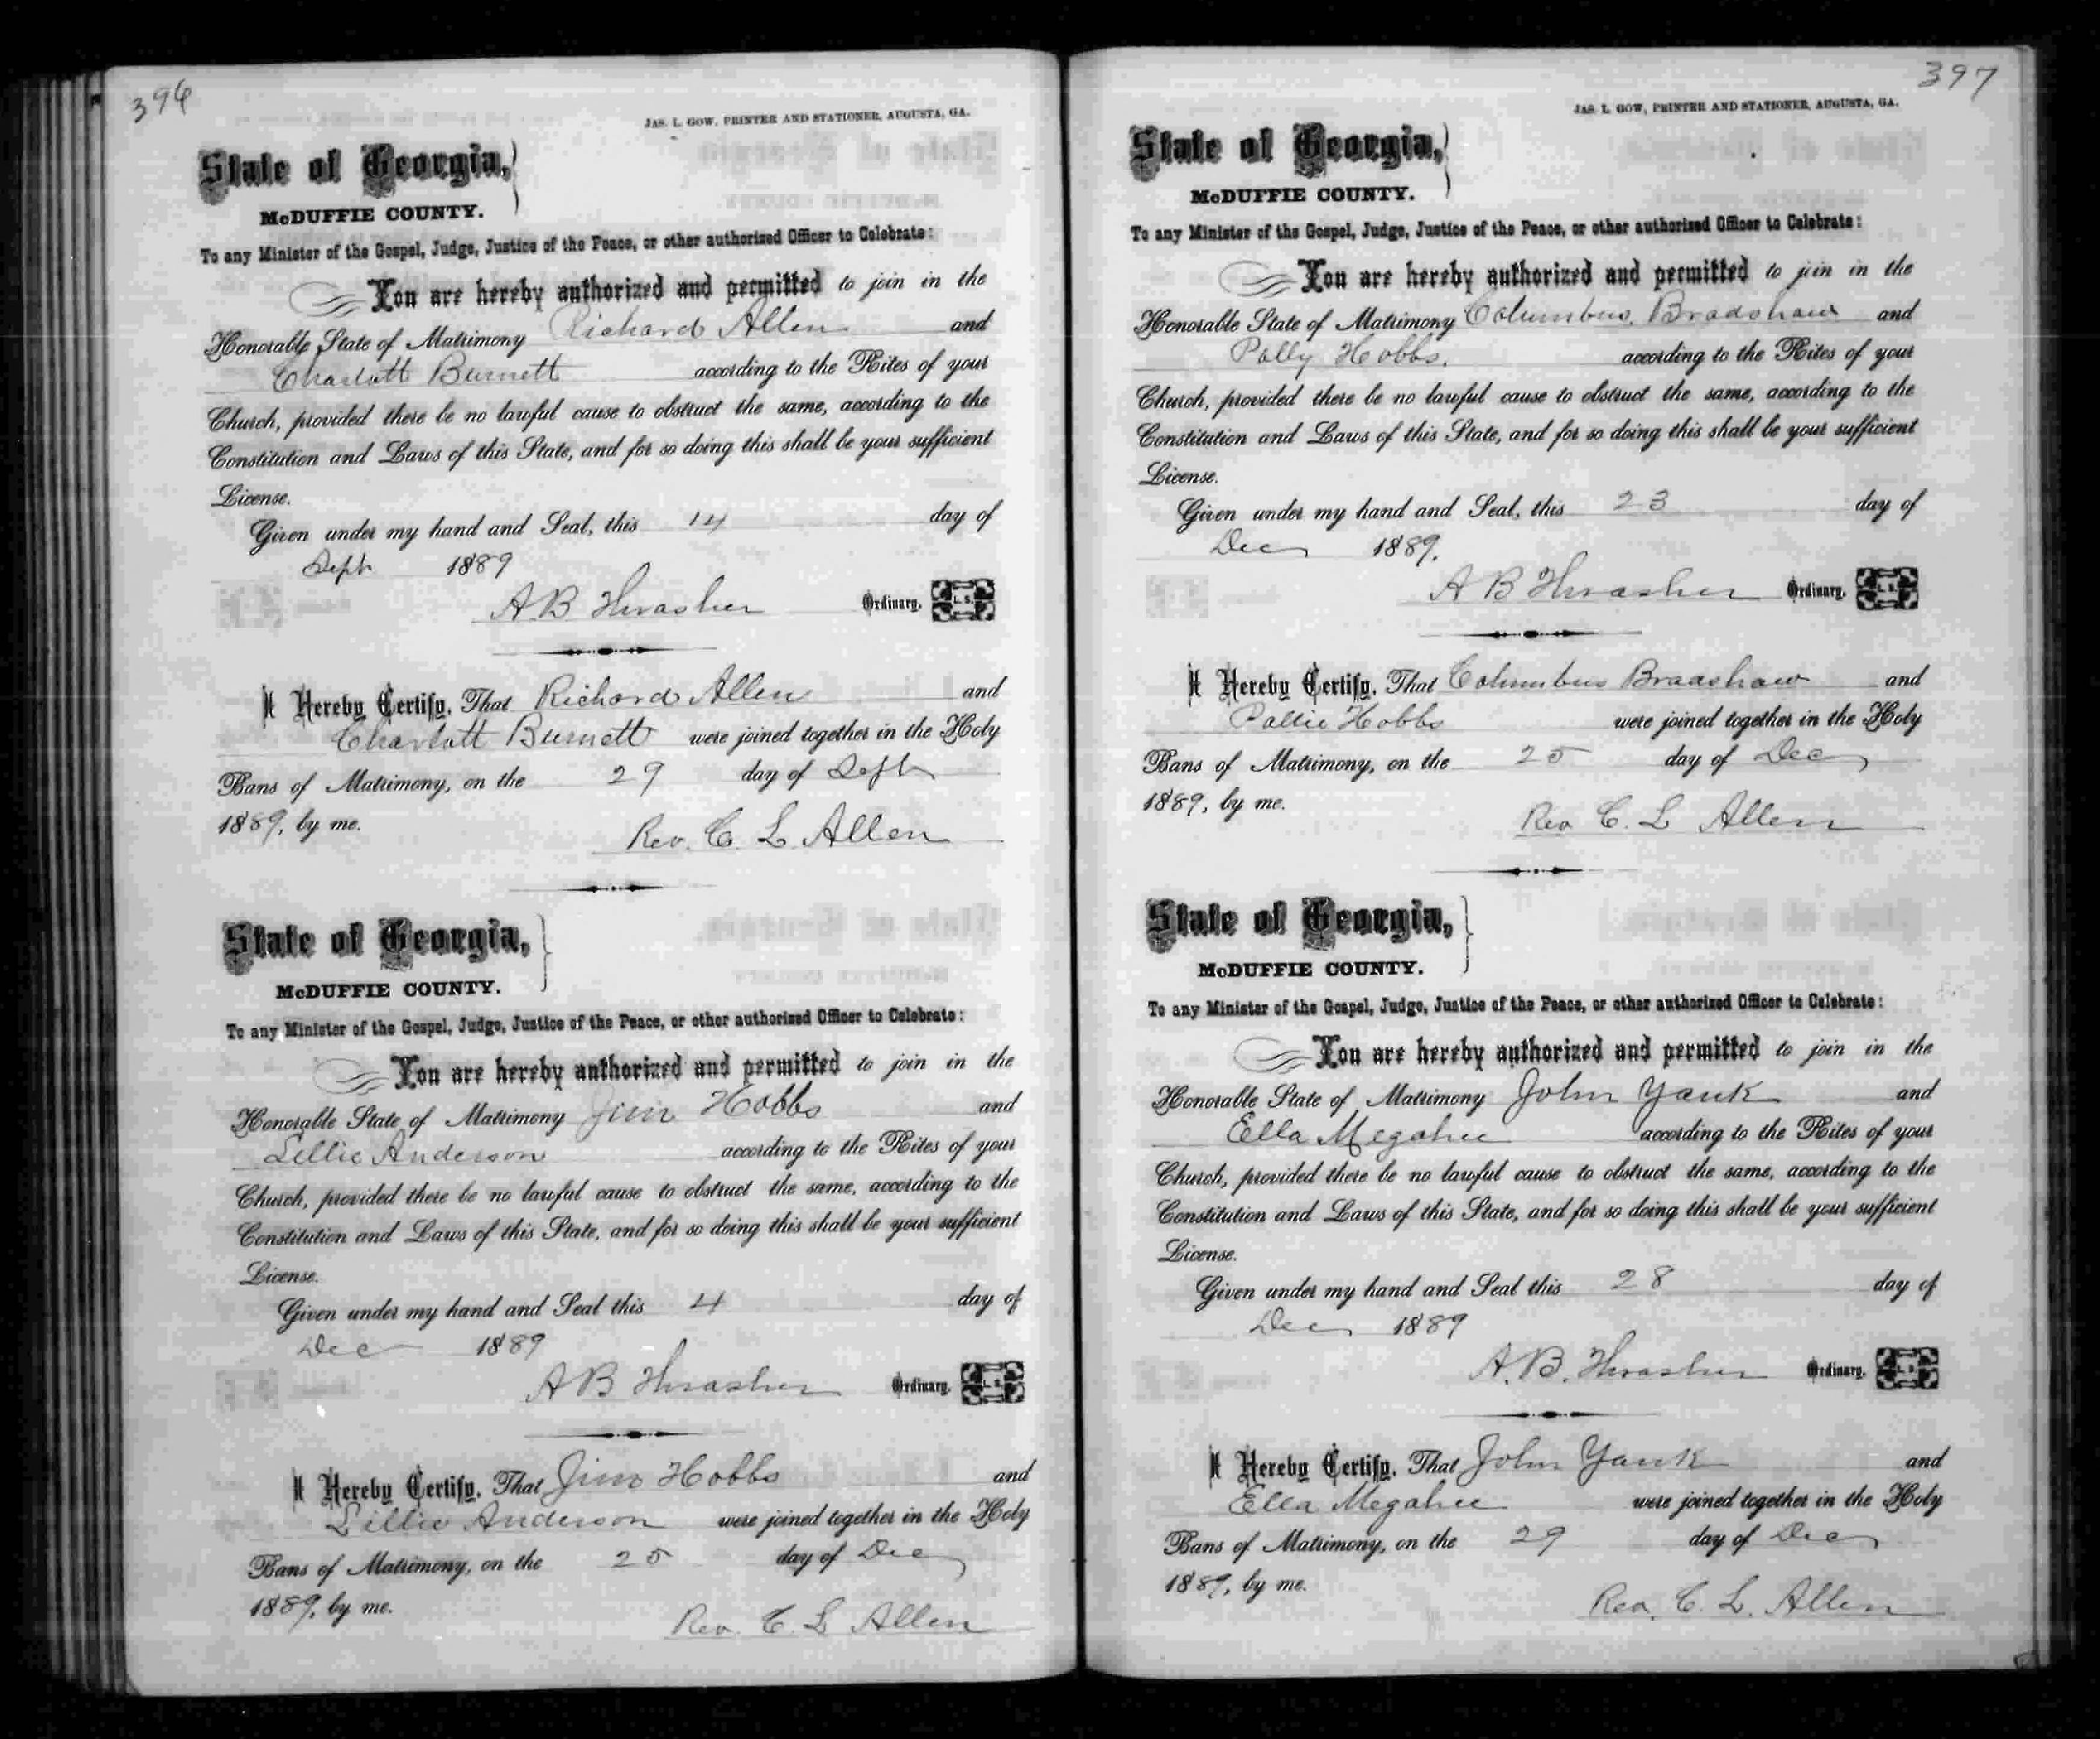 396
JAS. L. GOW, PRINTER AND STATIONER, AUGUSTA, GA.
State of Georgia,
McDUFFIE COUNTY.
To any Minister of the Gospel, Judge, Justice of the Peace, or other authorized Officer to Celebrate:
You are hereby authorized and permitted to join in the
Honorable State of Matrimony Richard Allen and
Charlott Burnett according to the Rites of your
Church, provided there be no lawful cause to obstruct the same, according to the
Constitution and Laws of this State, and for so doing this shall be your sufficient
License.
Given under my hand and Seal, this 14 day of
Sept 1889
A B Thrasher Ordinary. L. S.
I Hereby Certify, That Richard Allen and
Charlott Burnett were joined together in the Holy
Bans of Matrimony, on the 29 day of Sept
1889, by me.
Rev. C. L. Allen
State of Georgia,
McDUFFIE COUNTY.
To any Minister of the Gospel, Judge, Justice of the Peace, or other authorized Officer to Celebrate:
You are hereby authorized and permitted to join in the
Honorable State of Matrimony Jim Hobbs and
Lillie Anderson according to the Rites of your
Church, provided there be no lawful cause to obstruct the same, according to the
Constitution and Laws of this State, and for so doing this shall be your sufficient
License.
Given under my hand and Seal this 4 day of
Dec 1889
A B Thrasher Ordinary. L. S.
I Hereby Certify, That Jim Hobbs and
Lillie Anderson were joined together in the Holy
Bans of Matrimony, on the 25 day of Dec
1889, by me.
Rev. C. L Allen
397
JAS. L. GOW, PRINTER AND STATIONER, AUGUSTA, GA.
State of Georgia,
McDUFFIE COUNTY.
To any Minister of the Gospel, Judge, Justice of the Peace, or other authorized Officer to Celebrate:
You are hereby authorized and permitted to join in the
Honorable State of Matrimony Columbus Bradshaw and
Polly Hobbs. according to the Rites of your
Church, provided there be no lawful cause to obstruct the same, according to the
Constitution and Laws of this State, and for so doing this shall be your sufficient
License.
Given under my hand and Seal, this 23 day of
Dec 1889.
A B Thrasher Ordinary. L. S.
I Hereby Certify, That Columbus Bradshaw and
Pollie Hobbs were joined together in the Holy
Bans of Matrimony, on the 25 day of Dec
1889, by me.
Rev C. L Allen
State of Georgia,
McDUFFIE COUNTY.
To any Minister of the Gospel, Judge, Justice of the Peace, or other authorized Officer to Celebrate:
You are hereby authorized and permitted to join in the
Honorable State of Matrimony John Yank and
Ella Megahee according to the Rites of your
Church, provided there be no lawful cause to obstruct the same, according to the
Constitution and Laws of this State, and for so doing this shall be your sufficient
License.
Given under my hand and Seal this 28 day of
Dec 1889
A. B. Thrasher Ordinary. L. S.
I Hereby Certify, That John Yank and
Ella Megahee were joined together in the Holy
Bans of Matrimony, on the 29 day of Dec
1889, by me.
Rev. C. L. Allen